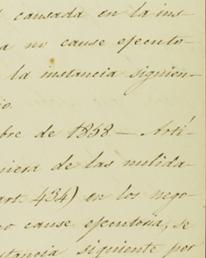 causada en la ins-
a no cause ejecuto-
la instancia siguien-
io.
bre de 1858 — Artí-
niera de las nulida-
art. 434) en los nego-
no cause ejecutoria, se
stancia siguiente por